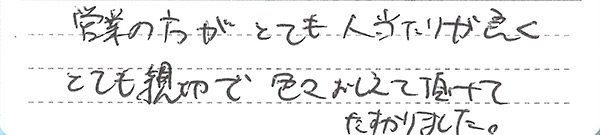 営業の方がとても人当たりが良く
とても親切で色々おしえて頂けて
たすかりました。